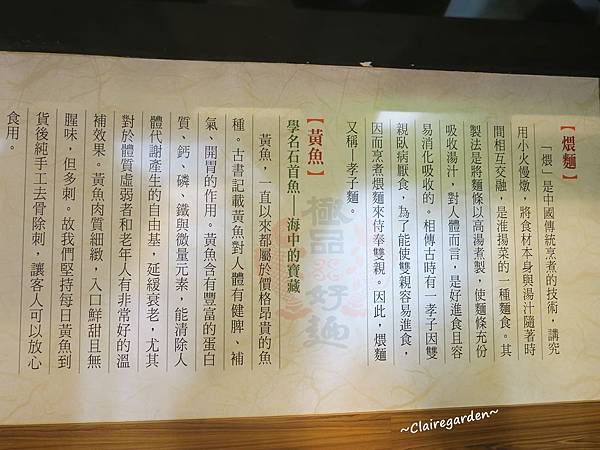 【煨麵】
「煨」是中國傳統烹煮的技術，講究
用小火慢燉，將食材本身與湯汁隨著時
間相互交融，是淮揚菜的一種麵食。其
製法是將麵條以高湯煮製，使麵條充份
吸收湯汁，對人體而言，是好進食且容
易消化吸收的。相傳古時有一孝子因雙
親臥病厭食，為了能使雙親容易進食，
因而烹煮煨麵來侍奉雙親。因此，煨麵
又稱，孝子麵。
【黃魚】
學名石首魚——海中的寶藏
黃魚，一直以來都屬於價格昂貴的魚
種。古書記載黃魚對人體有健脾、補
氣、開胃的作用。黃魚含有豐富的蛋白
質、鈣、磷、鐵與微量元素，能清除人
體代謝產生的自由基，延緩衰老，尤其
對於體質虛弱者和老年人有非常好的溫
補效果。黃魚肉質細緻，入口鮮甜且無
腥味，但多刺。故我們堅持每日黃魚到
貨後純手工去骨除刺，讓客人可以放心
食用。
極品
好麵
~Clairegarden~